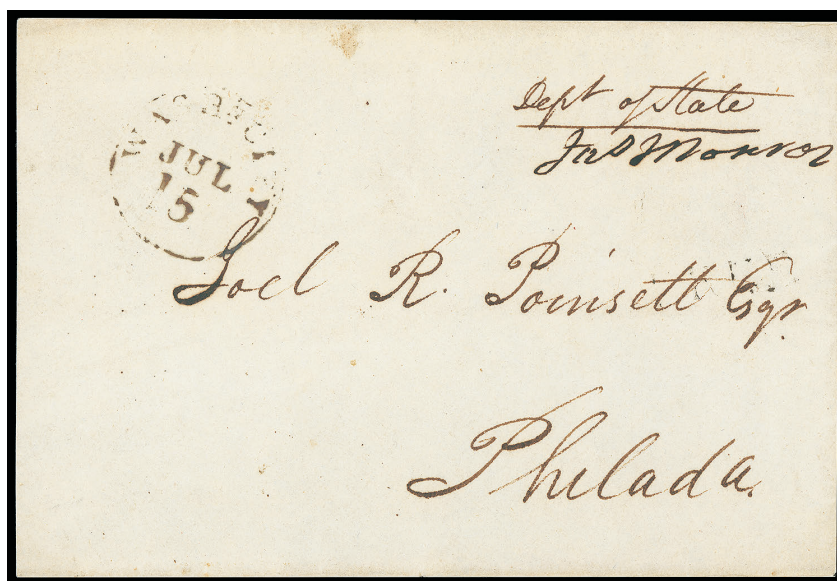 WASH CITY
JUL
15
Dept of State
Jas Monroe
Joel R. Poinsett Esqr.
Philada.